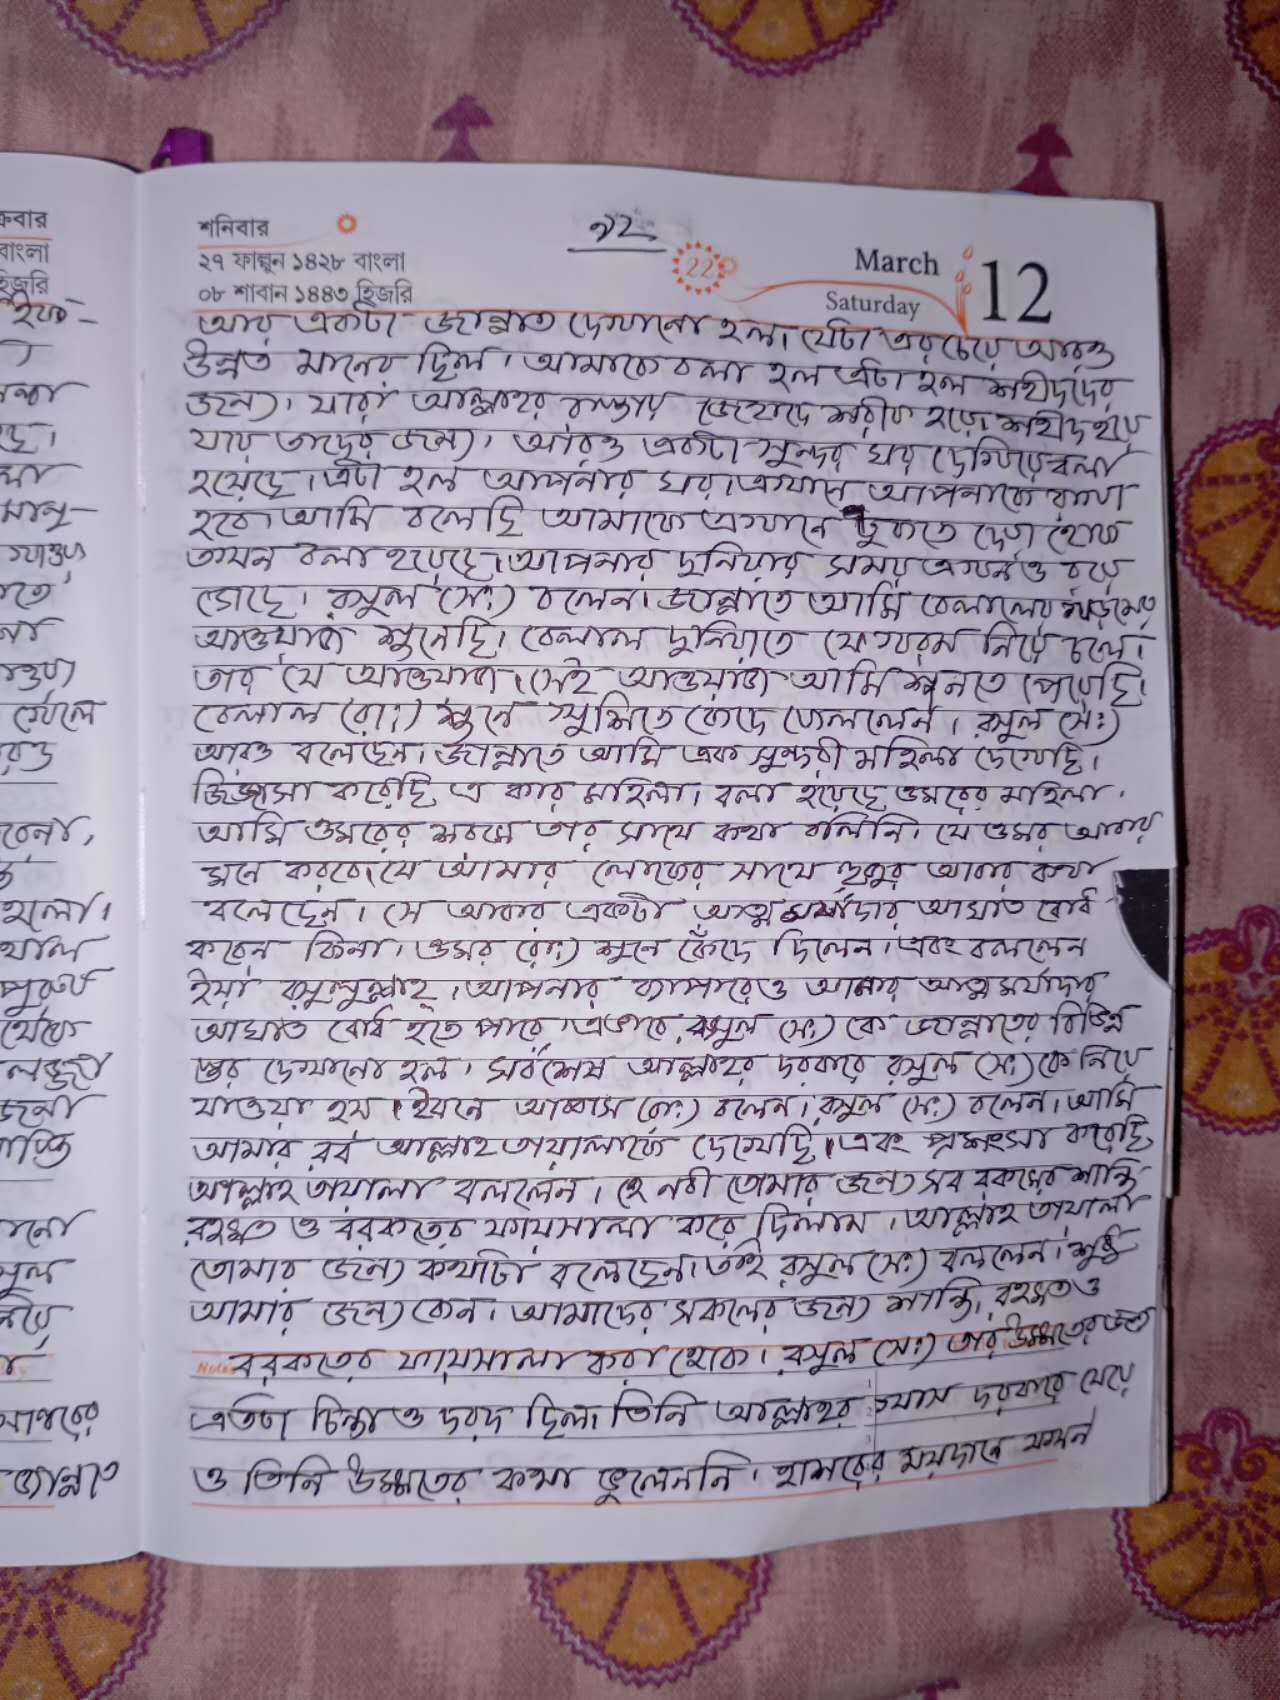 শনিবার
২৭ ফাল্গুন ১৪২৮ বাংলা
০৮ শাবান ১৪৪৩ হিজরি
৭২
22
March
Saturday
12
আর একটা জান্নাত দেখানো হল। যেটা এর চেয়ে আরও
উন্নত মানের ছিল। আমাকে বলা হল এটা হল শহীদদের
জন্য। যারা আল্লাহর রাস্তায় জেহাদে শরীক হয়ে শহীদ হয়ে
যায় তাদের জন্য। আরও একটা সুন্দর ঘর দেখিয়ে বলা
হয়েছে। এটা হল আপনার ঘর। এখানে আপনাকে রাখা
হবে। আমি বলেছি আমাকে এখানে ঢুকতে দেয়া হোক
তখন বলা হয়েছে। আপনার দুনিয়ার সময় এখনও রয়ে
গেছে। রসুল (সঃ) বলেন। জান্নাতে আমি বেলালের খড়মের
আওয়াজ শুনেছি। বেলাল দুনিয়াতে যে খরম নিয়ে চলে।
তার যে আওয়াজ। সেই আওয়াজ আমি শুনতে পেয়েছি।
বেলাল (রাঃ) শুনে খুশিতে কেদে ফেললেন। রসুল (সঃ)
আরও বলেছেন। জান্নাতে আমি এক সুন্দরী মহিলা দেখেছি।
জিজ্ঞাসা করেছি এ কার মহিলা। বলা হয়েছে ওমরের মহিলা।
আমি ওমরের শরমে তার সাথে কথা বলিনি। যে ওমর আবার
মনে করবে। যে আমার লোকের সাথে হুজুর আবার কথা
বলেছেন। সে আবার একটা আত্ম মর্যাদার আঘাত বোধ
করেন কিনা। ওমর (রাঃ) শুনে কেঁদে দিলেন। এবং বললেন
ইয়া রসুলুল্লাহ্। আপনার ব্যাপারেও আমার আত্ম মর্যাদার
আঘাত বোধ হতে পারে। এভাবে রসুল (সঃ) কে জান্নাতের বিভিন্ন
স্তর দেখানো হল। সর্বশেষ আল্লাহর দরবারে রসুল (সঃ) কে নিয়ে
যাওয়া হয়। ইবনে আব্বাস (রাঃ) বলেন। রসুল (সঃ) বলেন। আমি
আমার রব আল্লাহ তায়ালাকে দেখেছি। এবং প্রশংসা করেছি
আল্লাহ তায়ালা বললেন। হে নবী তোমার জন্য সব রকমের শান্তি
রহমত ও বরকতের ফায়সালা করে দিলাম। আল্লাহ তায়ালা
তোমার জন্য কথাটা বলেছেন। তাই রসুল (সঃ) বললেন। শুধু
আমার জন্য কেন। আমাদের সকলের জন্য শান্তি, রহমত ও
বরকতের ফায়সালা করা হোক। রসুল (সঃ) তার উম্মতের জন্য
এতটা চিন্তা ও দরদ ছিল। তিনি আল্লাহর খাস দরবারে যেয়ে
ও তিনি উম্মতের কথা ভুলেননি। হাশরের ময়দানে যখন